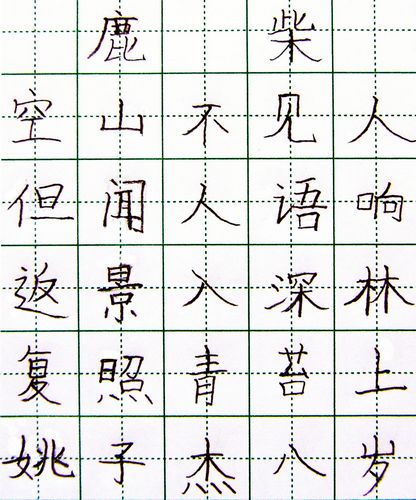 鹿柴
空山不见人
但闻人语响
返景入深林
复照青苔上
姚子杰八岁